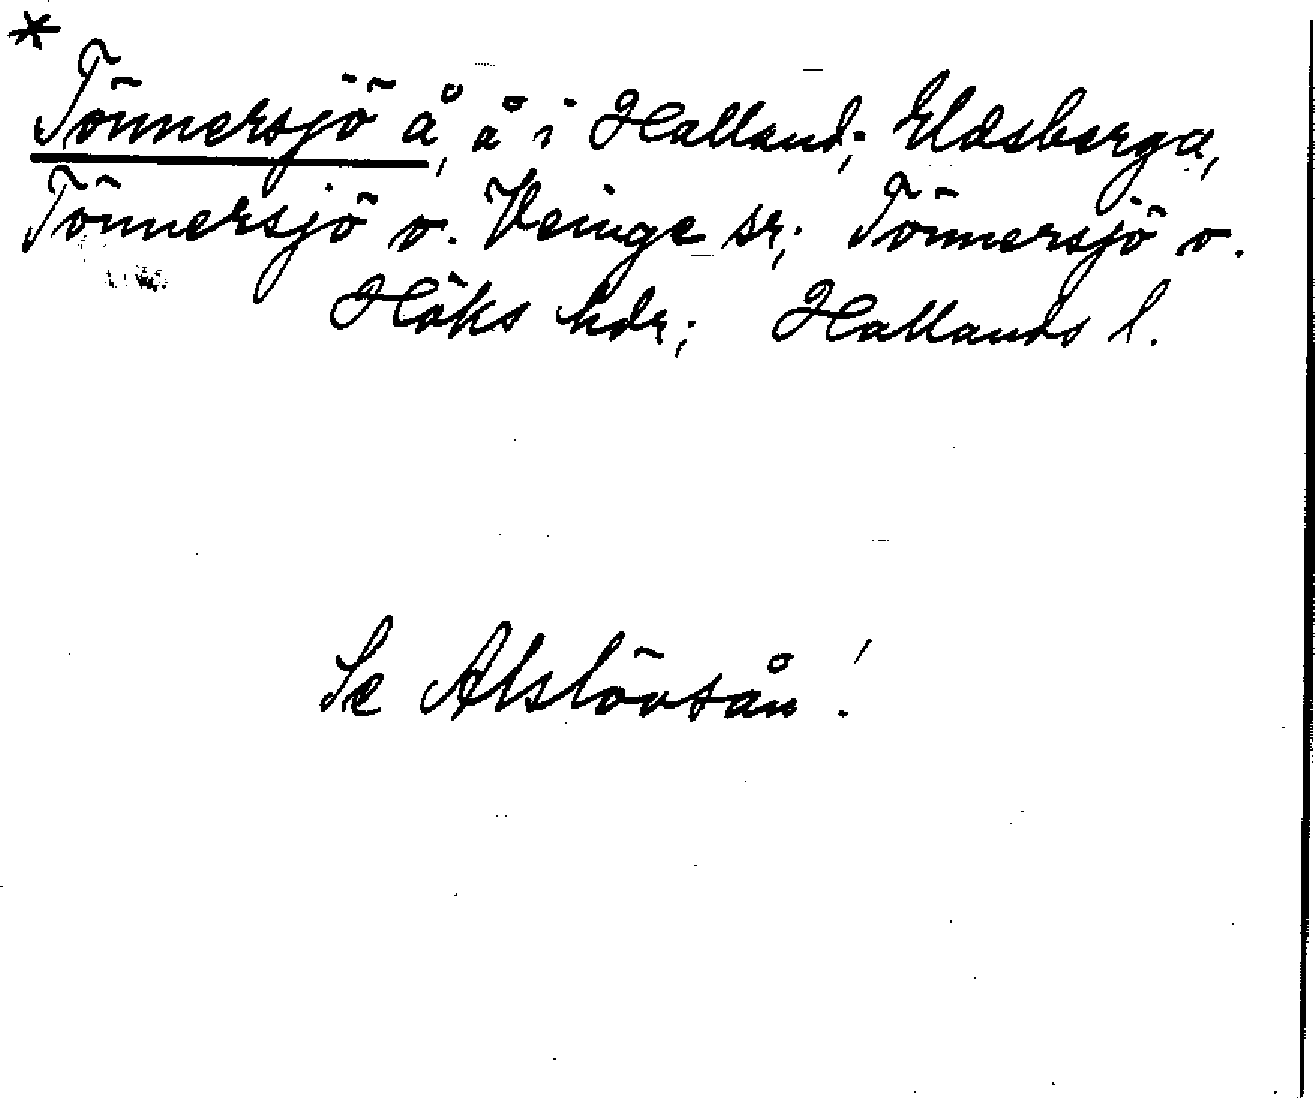 * Tönnersjö å, å i Halland; Eldsberga,
Tönnersjö o. Veinge sr; Tönnersjö o.
Höks hdr; Hallands l.
Se Alslövsån!